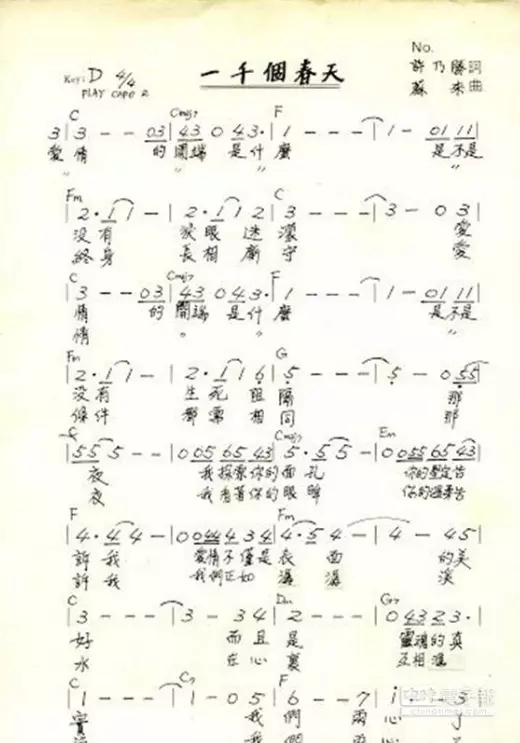 No.
Key: D 4/4 一千個春天 許乃勝 詞
PLAY CAPO 2 蘇來 曲
C Cmaj7 F
3 | 3 - - 0 3 | 4 3 0 4 3 · | 1 - - - | 1 - 0 1 1 1 |
愛情 的開端是什麼 是不是
〃 〃 〃 〃
Fm C
| 2 · 1 1 - | 2 · 1 1 2 | 3 - - - | 3 - 0 3 |
沒有 淚眼迷濛 愛
終身 長相廝守 愛
C Cmaj7 F
| 3 - - 0 3 | 4 3 0 4 3 · | 1 - - - | 1 - 0 1 1 1 |
情 的開端是什麼 是不是
情 〃 〃 〃 〃
Fm G
| 2 · 1 1 - | 2 · 1 1 6 | 5 - - - | 5 - 0 5 5 |
沒有 生死阻隔 那
條件 都需相同 那
C Cmaj7 Em
| 5 5 5 - | 0 0 5 6 5 4 3 | 5 · 5 5 - | 0 0 5 5 6 5 4 3 |
夜 我探索你的面孔 你的堅定告
夜 我看著你的眼眸 你的溫柔告
F Fm
| 4 · 4 4 - | 0 0 4 4 4 3 4 | 4 · 5 4 - | 4 - 4 5 |
訴我 愛情不僅是表面 的美
訴我 我們正如潺潺 溪
C Dm G7
| 3 - - - | 3 - 3 4 | 2 - - - | 0 4 3 2 3 · |
好 而且是 靈魂的真
水 在心裏 互相
C C7 F
| 1 - - - | 1 - 0 5 | 6 - - 7 | 1 · - 3 |
實 我們兩心
我們兩心
中時電子報
chinatimes.com